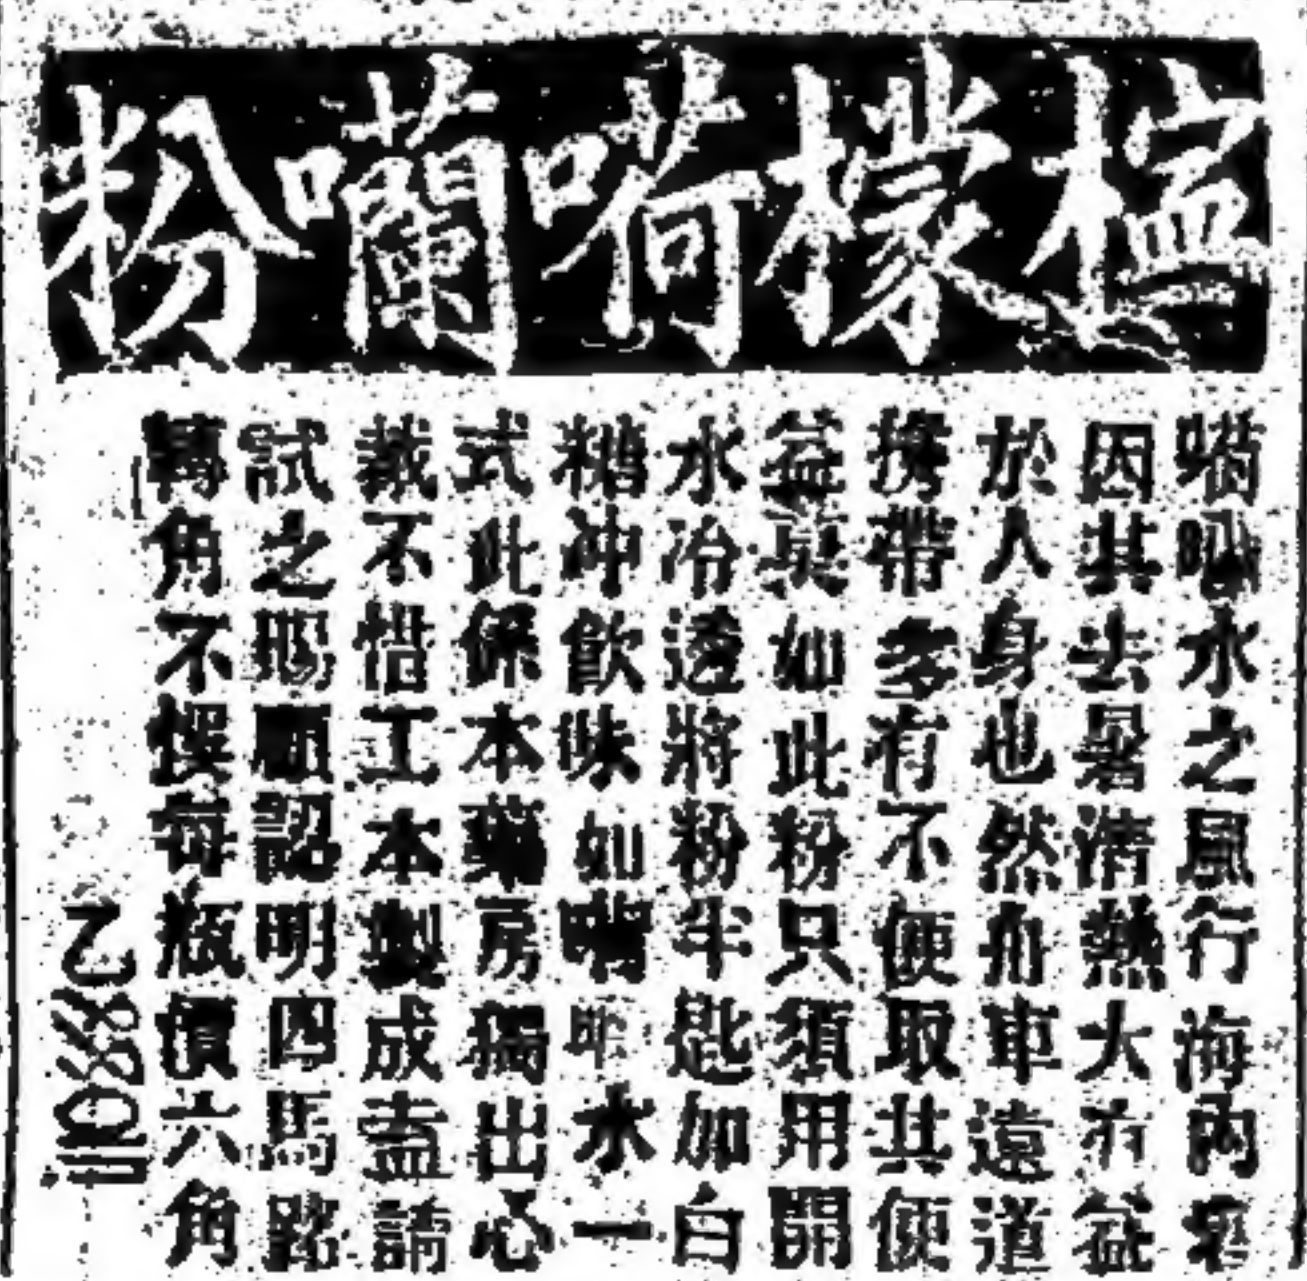 檸檬嗬囒粉
嗬囒水之風行海內寔
因其去暑清熱大有益
於人身也然舟車遠道
携帶多有不便取其便
益莫如此粉只須用開
水冷透將粉半匙加白
糖冲飲味如嗬囒水一
式此係本藥房獨出心
裁不惜工本製成盍請
試之賜顧認明四馬路
轉角不悞每瓶價六角